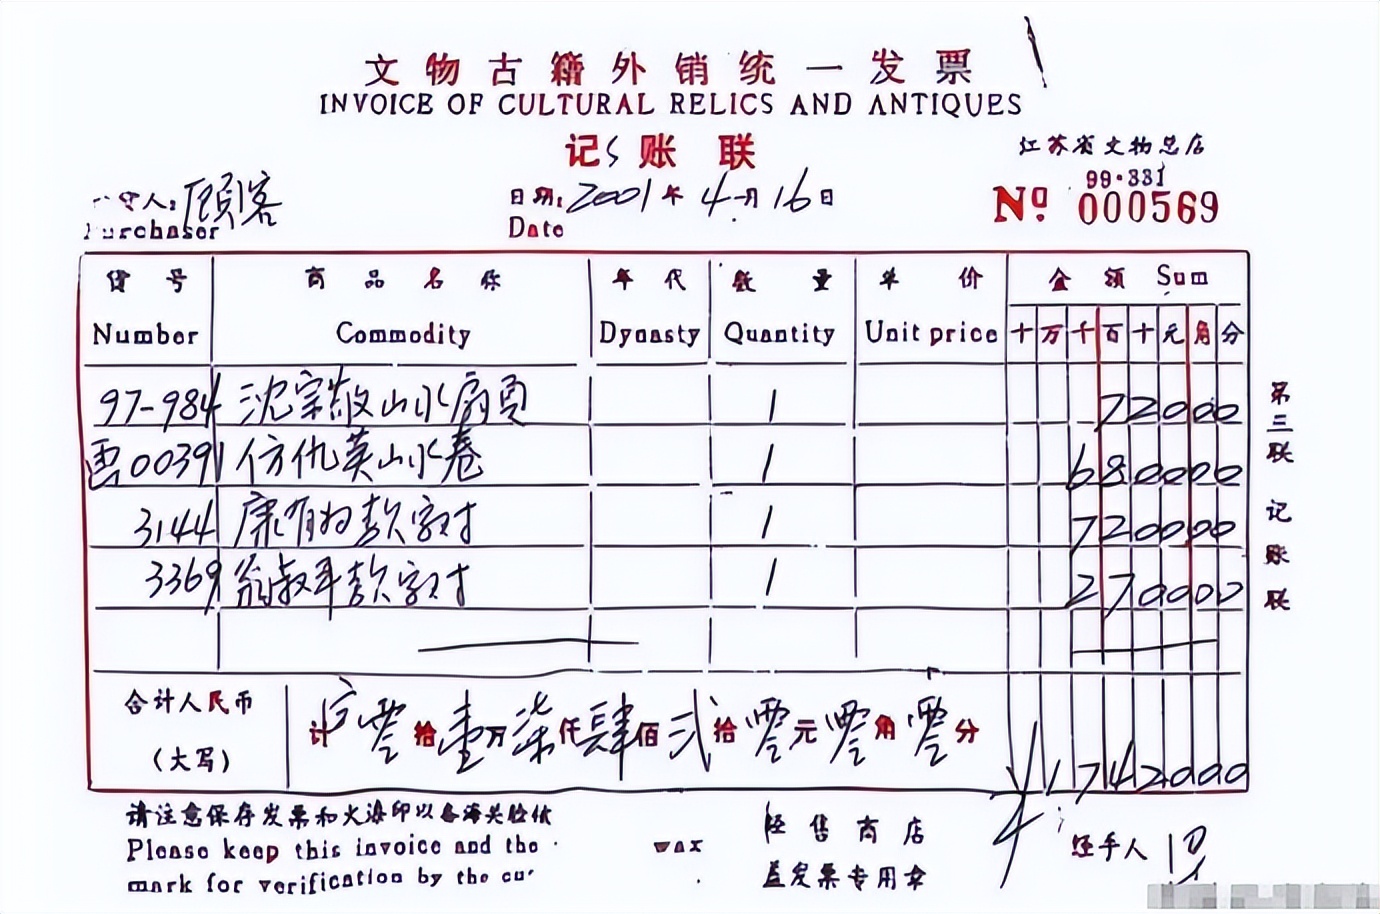 文物古籍外销统一发票
INVOICE OF CULTURAL RELICS AND ANTIQUES
记账联
江苏省文物总店
99·331
Nº 000569
人：顾客
Purchaser
日期：2001年4月16日
Date
货号 商品名称 年代 数量 单价 金额 Sum
Number Commodity Dynasty Quantity Unit price 十万千百十元角分
97-984 沈宗敬山水扇页 1 72000
画00391 仿仇英山水卷 1 680000
3144 康有为款字对 1 720000
3369 翁叔平款字对 1 270000
第三联 记账联
合计人民币
（大写）
计零拾壹万柒仟肆佰贰拾零元零角零分
¥1742000
请注意保存发票和火漆印以备海关验
Please keep this invoice and the wax
mark for verification by the cu
经售商店
盖发票专用章
经手人